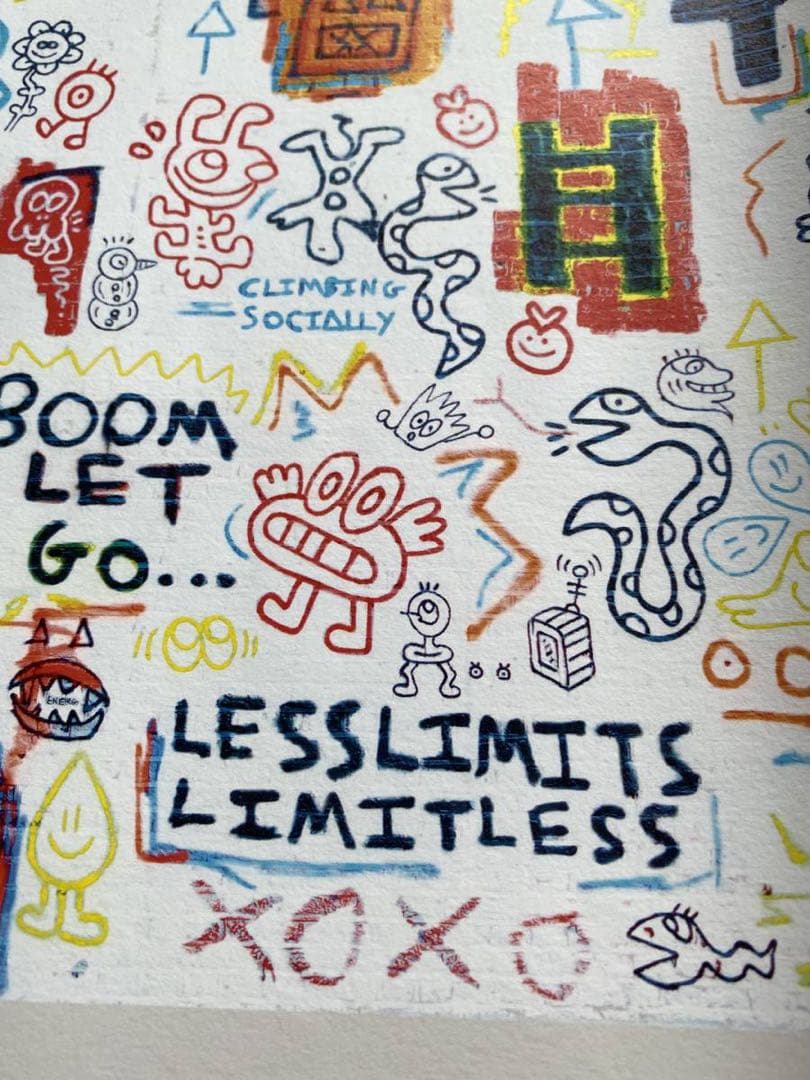 CLIMBING
SOCIALLY
BOOM
LET
GO...
ENERG
LESSLIMITS
LIMITLESS
XOXO